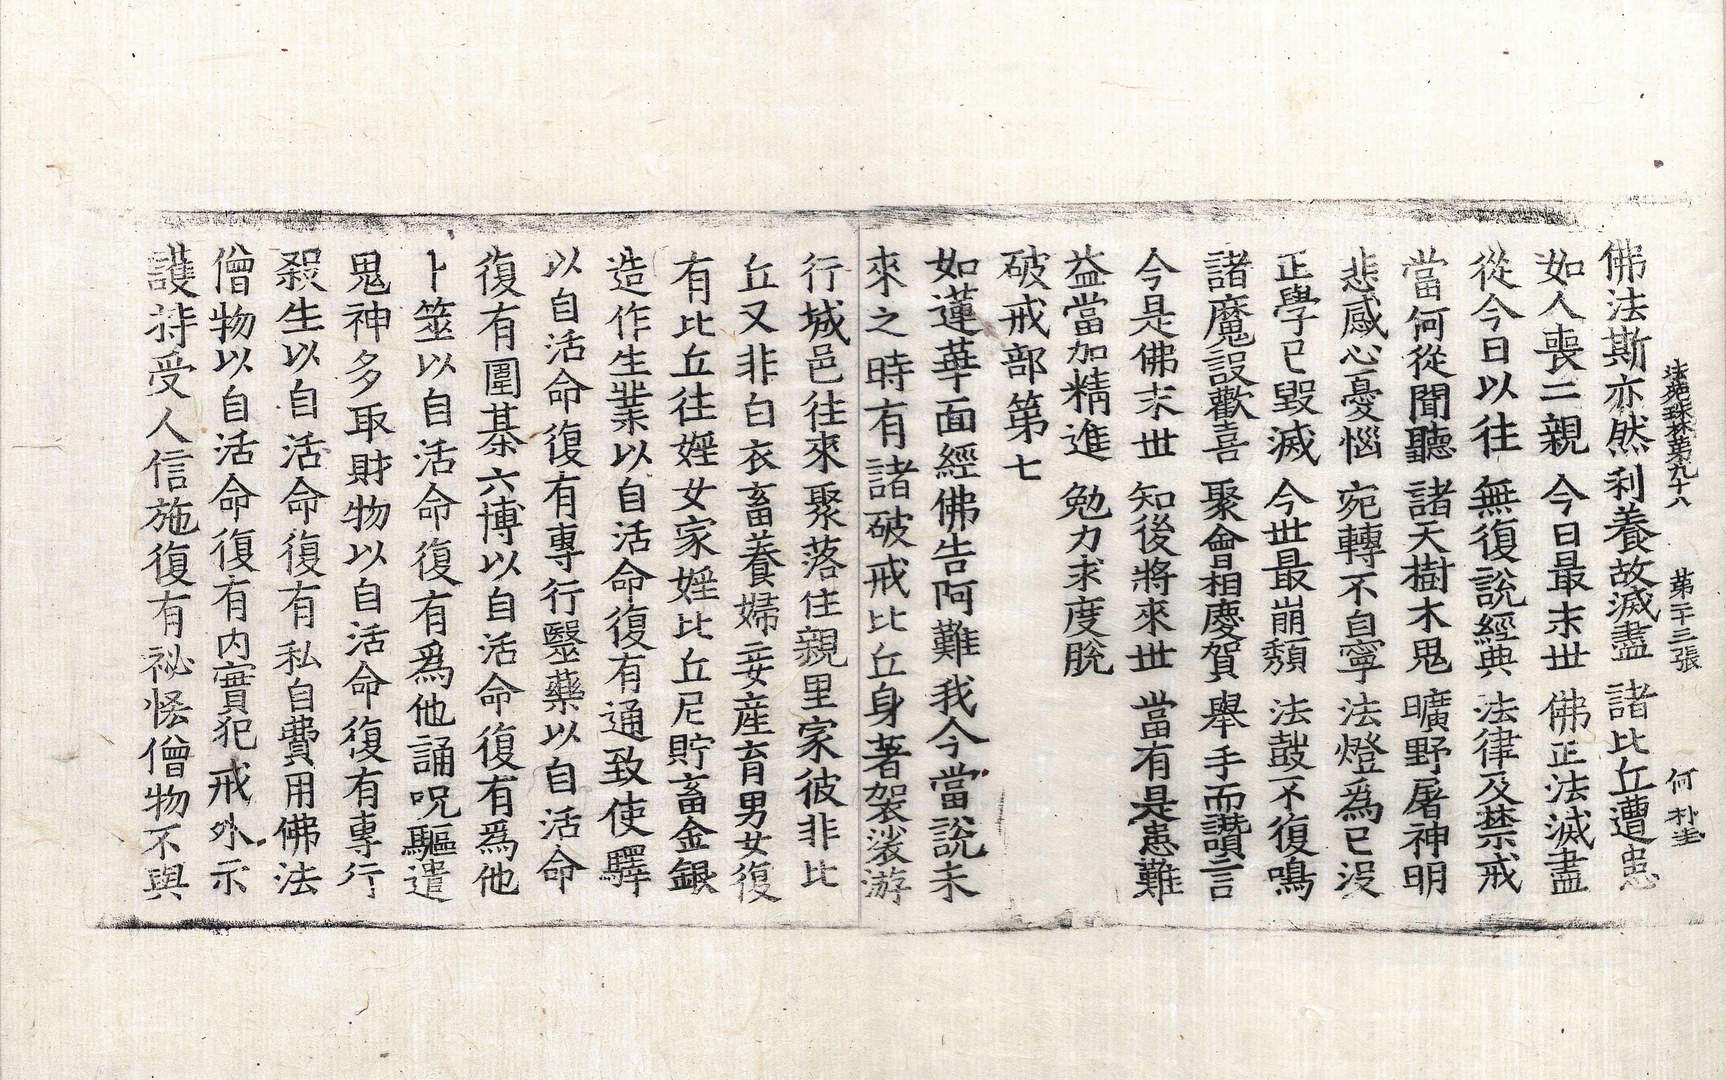 法苑珠林第九十八 第二十三張 何 朴圭
佛法斯亦然利養故滅盡 諸比丘遭患
如人喪二親 今日最末世 佛正法滅盡
從今日以往 無復說經典 法律及禁戒
當何從聞聽 諸天樹木鬼 曠野屠神明
悲感心憂惱 宛轉不自寧 法燈爲已沒
正學已毀滅 今世最崩頹 法鼓不復鳴
諸魔設歡喜 聚會相慶賀 舉手而讚言
今是佛末世 知後將來世 當有是患難
益當加精進 勉力求度脫
破戒部第七
如蓮華面經佛告阿難我今當說未
來之時有諸破戒比丘身著袈裟游
行城邑往來聚落住親里家彼非比
丘又非白衣畜養婦妾産育男女復
有比丘往婬女家婬比丘尼貯畜金銀
造作生業以自活命復有通致使驛
以自活命復有專行醫藥以自活命
復有圍碁六博以自活命復有爲他
卜筮以自活命復有爲他誦呪驅遣
鬼神多取財物以自活命復有專行
殺生以自活命復有私自費用佛法
僧物以自活命復有內實犯戒外示
護持受人信施復有祕悋僧物不與